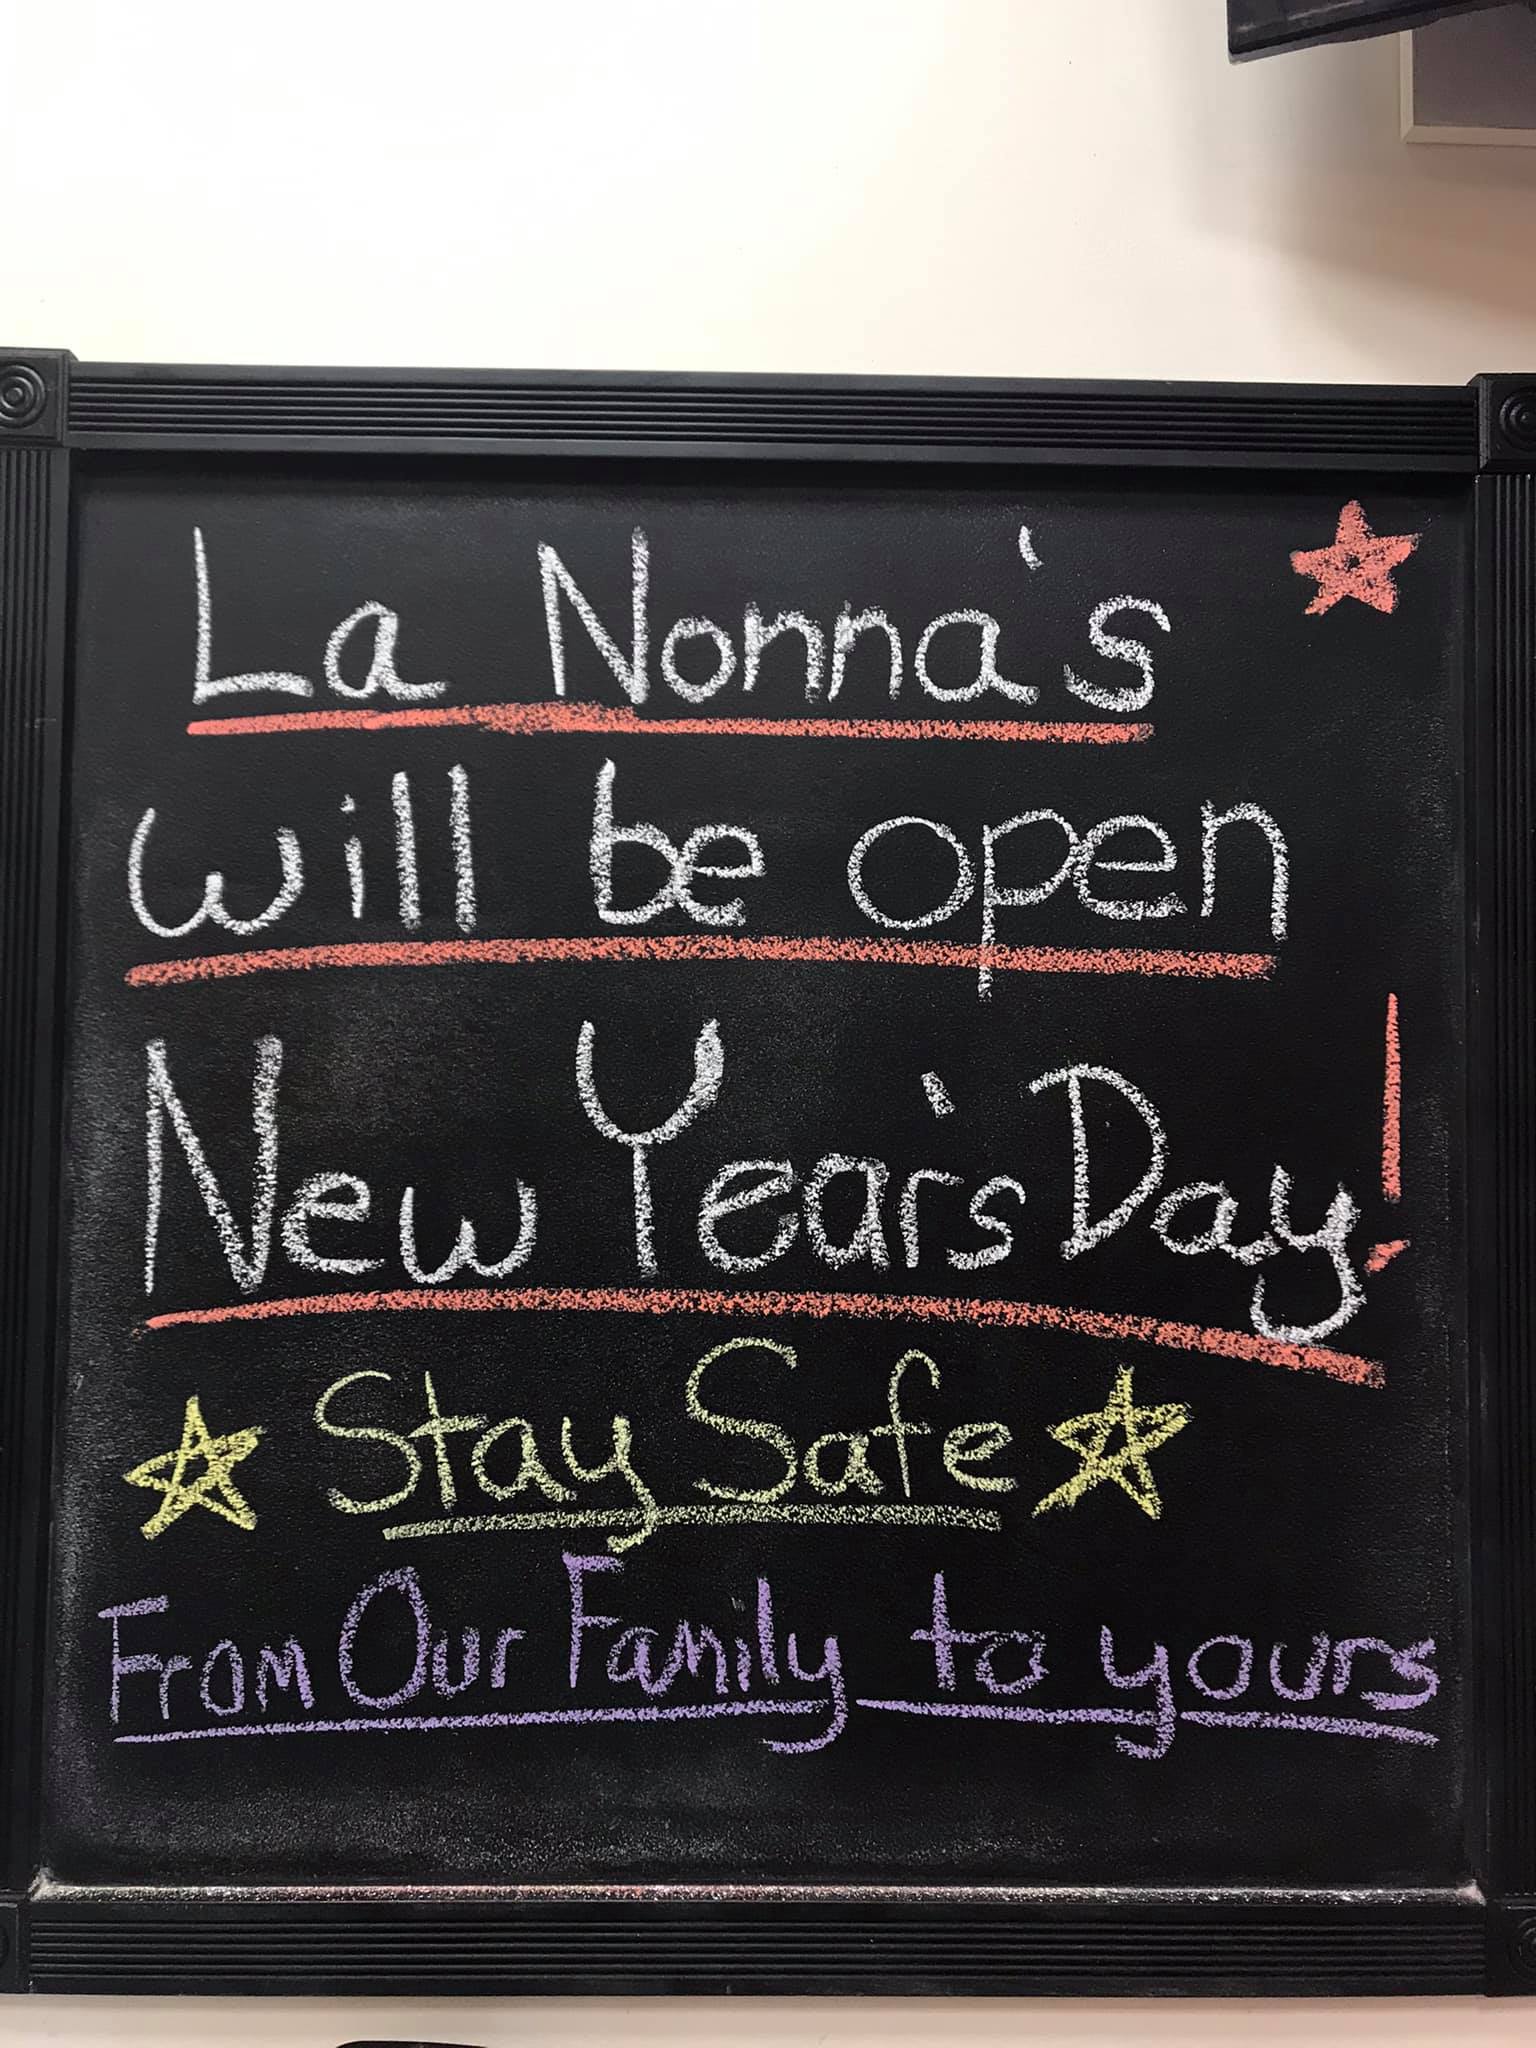 La Nonna's
will be open
New Year's Day!
Stay Safe
From Our Family to yours